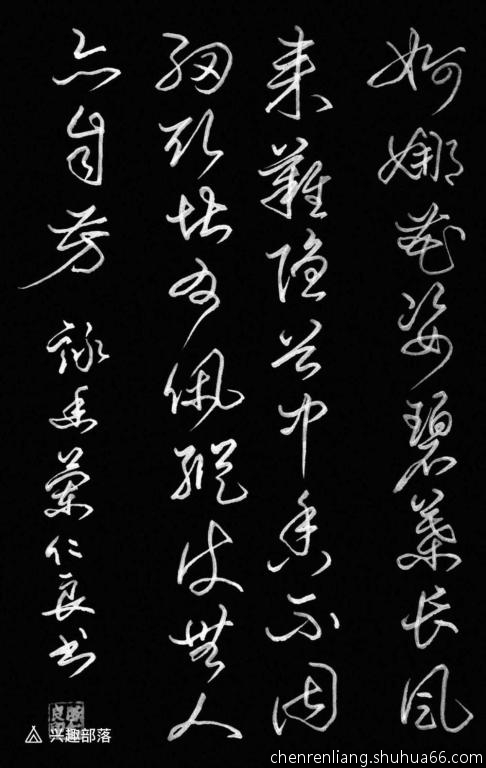 婀娜花姿碧葉长风
来難隐谷中香不因
纫取堪为佩縱使無人
亦自芳 詠香蘭仁良书
兴趣部落
chenrenliang.shuhua66.com